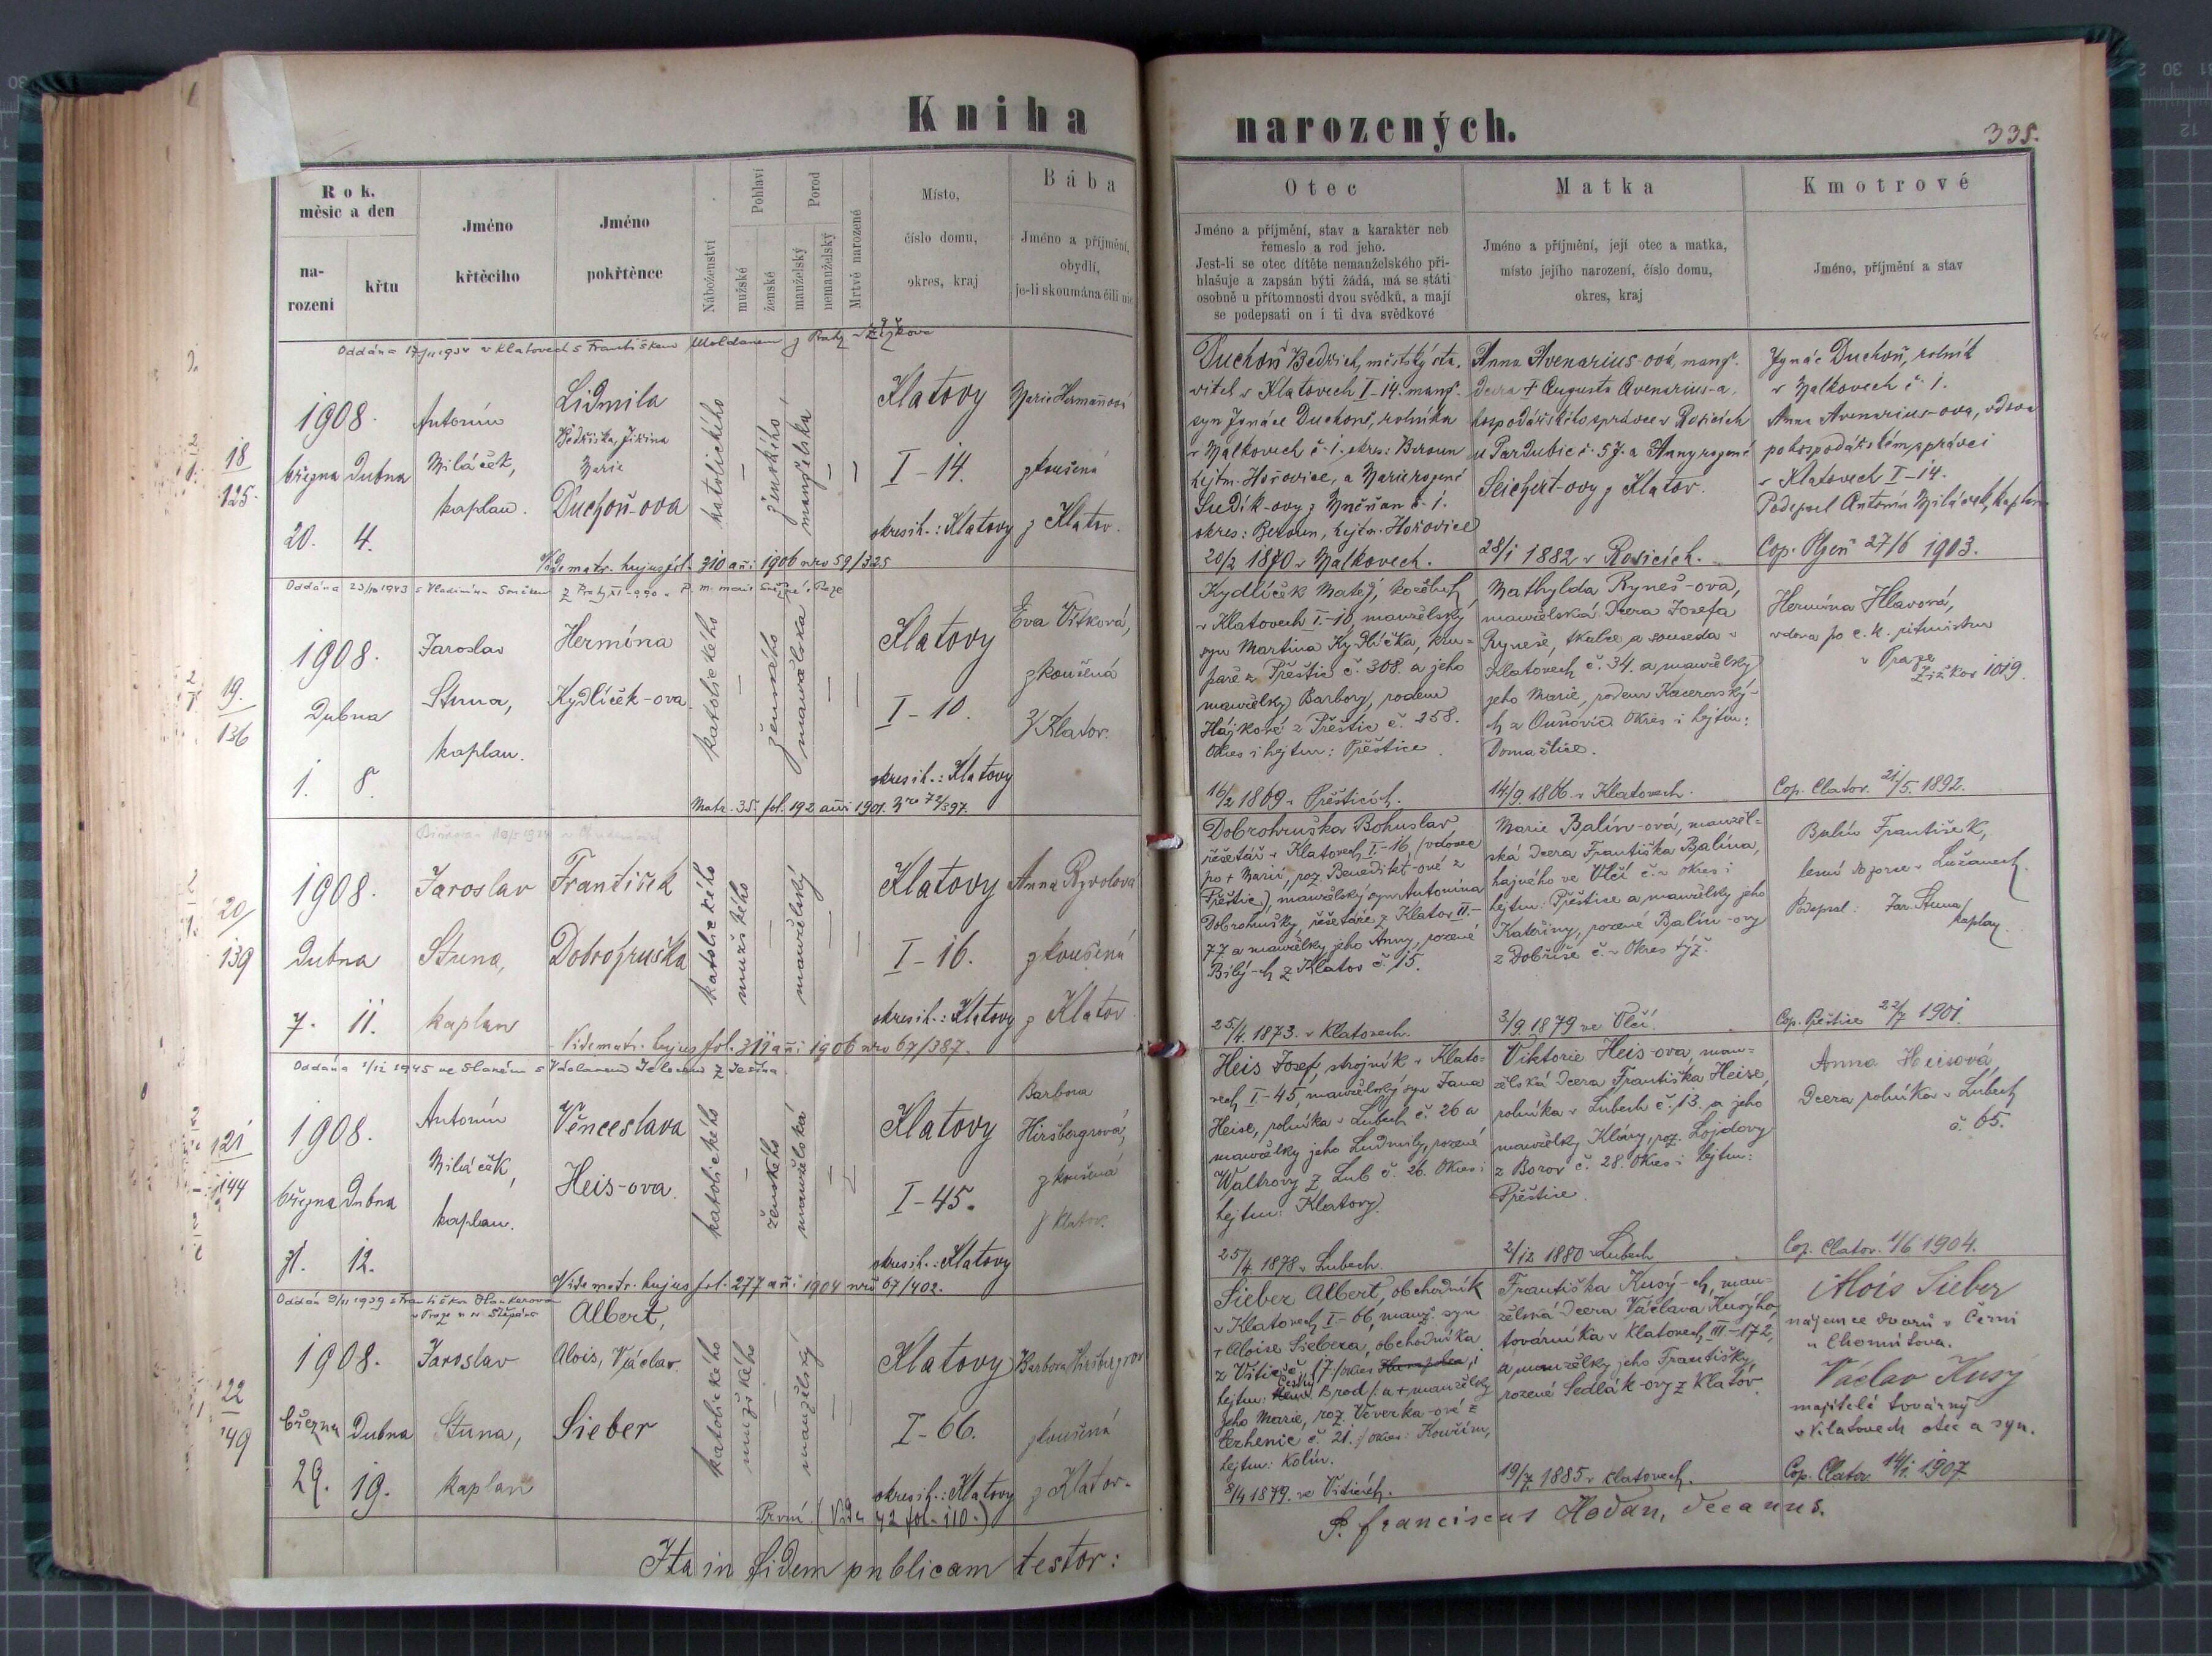 Kniha
narozených.
335.
Rok,
měsíc a den
na-
rození
křtu
Jméno
křtícího
Jméno
pokřtěnce
Náboženství
Pohlaví
mužské
ženské
Porod
manželský
nemanželský
Mrtvě narozené
Místo,
číslo domu,
okres, kraj
Bába
Jméno a příjmění,
obydlí,
je-li skoumána čili nic
Otec
Jméno a příjmění, stav a karakter neb
řemeslo a rod jeho.
Jest-li se otec dítěte nemanželského při-
hlašuje a zapsán býti žádá, má se státi
osobně u přítomnosti dvou svědků, a mají
se podepsati on i ti dva svědkové
Matka
Jméno a příjmění, její otec a matka,
místo jejího narození, číslo domu,
okres, kraj
Kmotrové
Jméno, příjmění a stav
Oddána 17/11 1934 v Klatovech s Františkem Moldanem z Prahy - Žižkova
18
125.
1908.
března
20.
Dubna
4.
Antonín
Miláček,
kaplan.
Lidmila
Bedřiška, Jiřina
Marie
Duchoň-ova
katolického
ženského
manželská
Klatovy
I-14.
okres ih.: Klatovy
Marie Hermannová
zkoušená
z Klatov.
Vide matr. hujus fol. 310 anni 1906 nro 59/325
Duchoň Bedřich, městský sta-
vitel v Klatovech I-14. manž.
syn Ignáce Duchoně, rolníka
v Malkovech č. 1. okres: Beroun
hejtm. Hořovice, a Marie rozené
okres: Beroun, hejtm. Hořovice
20/2 1870 v Malkovech.
Anna Avenarius-ová, manž.
dcera † Augusta Avenarius-a,
hospodářského správce v Rosicích
u Pardubic č. 57. a Anny rozené
Seichert-ovy z Klatov.
28/1 1882 v Rosicích.
Ignác Duchoň, rolník
v Malkovech č. 1.
Anna Avenarius-ova, vdova
po hospodářském správci
v Klatovech I-14.
Podepsal Antonín Miláček, kaplan
Cop. Plzeň 27/6 1903.
Oddána 23/10 1943 s Vladimírem
19.
136
1908.
Dubna
1.
8.
Jaroslav
Stuna,
kaplan.
Hermína
Kydlíček-ova
katolického
ženského
manželská
Klatovy
I-10.
okres ih.: Klatovy
Eva Vítková,
zkoušená
Z Klatov.
Matr. 35. fol. 192 anni 1901. Nro 72/597.
Kydlíček Matěj, kožešník
v Klatovech I.-10, manželský
syn Martina Kydlíčka, kru-
paře z Přeštic č. 308. a jeho
manželky Barbory, rodem
Hájkové z Přeštic č. 258.
Okres i hejtm: Přeštice.
16/2 1869 v Přešticích.
Mathylda Ryneš-ova,
manželská dcera Josefa
Ryneše, tkalce a souseda v
Klatovech č. 34. a manželky
jeho Marie, rodem Kacerovský-
Okres i hejtm:
Domažlice.
14/9. 1866. v Klatovech.
Hermína Hlavová,
vdova po c. k. ritmistru
v Praze
Žižkov 1019.
Cop. Clatov. 21/5. 1892.
20/
139
1908.
Dubna
7.
11.
Jaroslav
Stuna,
kaplan
František
Dobrohruška
katolického
mužského
manželský
Klatovy
I-16.
okres ih.: Klatovy
Anna Rozvolova
zkoušená
z Klatov
Vide matr. hujus fol. 311 anni 1906 nro 67/387.
Dobrohruška Bohuslav,
řešetář v Klatovech I-16, (vdovec
po † Marii, roz. Benedikt-ové z
Přeštic), manželský syn Antonína
Dobrohrušky, řešetáře z Klatov II.-
77 a manželky jeho Anny, rozené
Bílý-ch z Klatov č. 15.
25/4. 1873. v Klatovech.
Marie Balín-ová, manžel-
ská dcera Františka Balína,
hajného ve Vlčí č. - Okres i
hejtm: Přeštice a manželky jeho
Kateřiny, rozené Balín-ovy
z Dobříše č. - Okres týž.
3/9. 1879 ve Vlčí.
Balín František,
lesní dozorce v Lužanech.
Podepsal: Jar. Stuna,
kaplan.
Cop. Přeštice 22/7 1901.
Oddána 1/12 1945 ve Slaném s Václavem
121
144
1908.
března
31.
Dubna
12.
Antonín
Miláček,
kaplan.
Věnceslava
Heis-ova.
katolického
ženského
manželská
Klatovy
I-45.
okres ih.: Klatovy
Barbora
Hiršbergrová,
zkoušená
z Klatov.
Vide matr. hujus fol. 277 anni 1904 nro 67/402.
Heis Josef, strojník v Klato-
vech I-45, manželský syn Jana
Heise, rolníka v Lubech č. 26 a
manželky jeho Ludmily, rozené
Waltrovy z Lub č. 26. Okres i
hejtm: Klatovy.
25/4. 1878 v Lubech.
Viktorie Heis-ova, man-
želská dcera Františka Heise,
rolníka v Lubech č. 13. a jeho
manželky Kláry, roz. Lojdovy
z Borov č. 28. Okres i hejtm:
Přeštice.
2/12 1880 v Lubech
Anna Heisová,
Dcera rolníka v Lubech
č. 65.
Cop. Clatov. 1/6 1904.
Oddán 9/11 1939 s Františkou Hankerovou
v Praze u sv. Štěpána
122
149
1908.
března
29.
Dubna
19.
Jaroslav
Stuna,
kaplan
Albert,
Alois, Václav.
Sieber
katolického
mužského
manželský
Klatovy
I-66.
okres ih.: Klatovy
Barbora Hiršbergrova
zkoušená
z Klatov.
První. (Vide 42 fol. 110.)
Sieber Albert, obchodník
v Klatovech I-66, manž. syn
† Aloise Siebera, obchodníka
hejtm: Český Brod /: a † manželky
jeho Marie, roz. Veverka-ové z
Cerhenic č. 21. /: Okres: Kouřim,
hejtm: Kolín.
8/4 1879. ve Viticích.
Františka Kusý-ch, man-
želská dcera Václava Kusýho,
továrníka v Klatovech III-172,
a manželky jeho Františky,
rozené Sedlák-ovy z Klatov.
19/7. 1885 v Klatovech.
Alois Sieber
nájemce dvoru v Černi
u Chomutova.
Václav Kusý
majitelé továrny
v Klatovech otec a syn.
Cop. Clatov 14/1. 1907
Ita in fidem publicam testor:
P. Franciscus Hodan, decanus.